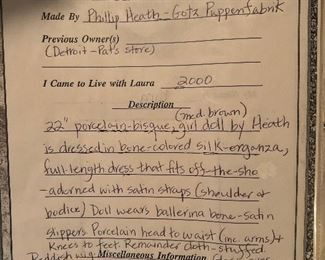 Made By Phillip Heath-Gotz Puppenfabrik
Previous Owner(s)
(Detroit-Pat's store)
I Came to Live with Laura 2000
Description (med. brown)
22" porcelain-bisque, girl doll by Heath
is dressed in bone-colored silk-organza,
full-length dress that fits off-the-sho
-adorned with satin straps (shoulder at
bodice) Doll wears ballerina bone-satin
slippers Porcelain head to waist (inc. arms) +
Knees to feet. Remainder cloth-stuffed
Reddish wig Miscellaneous Information